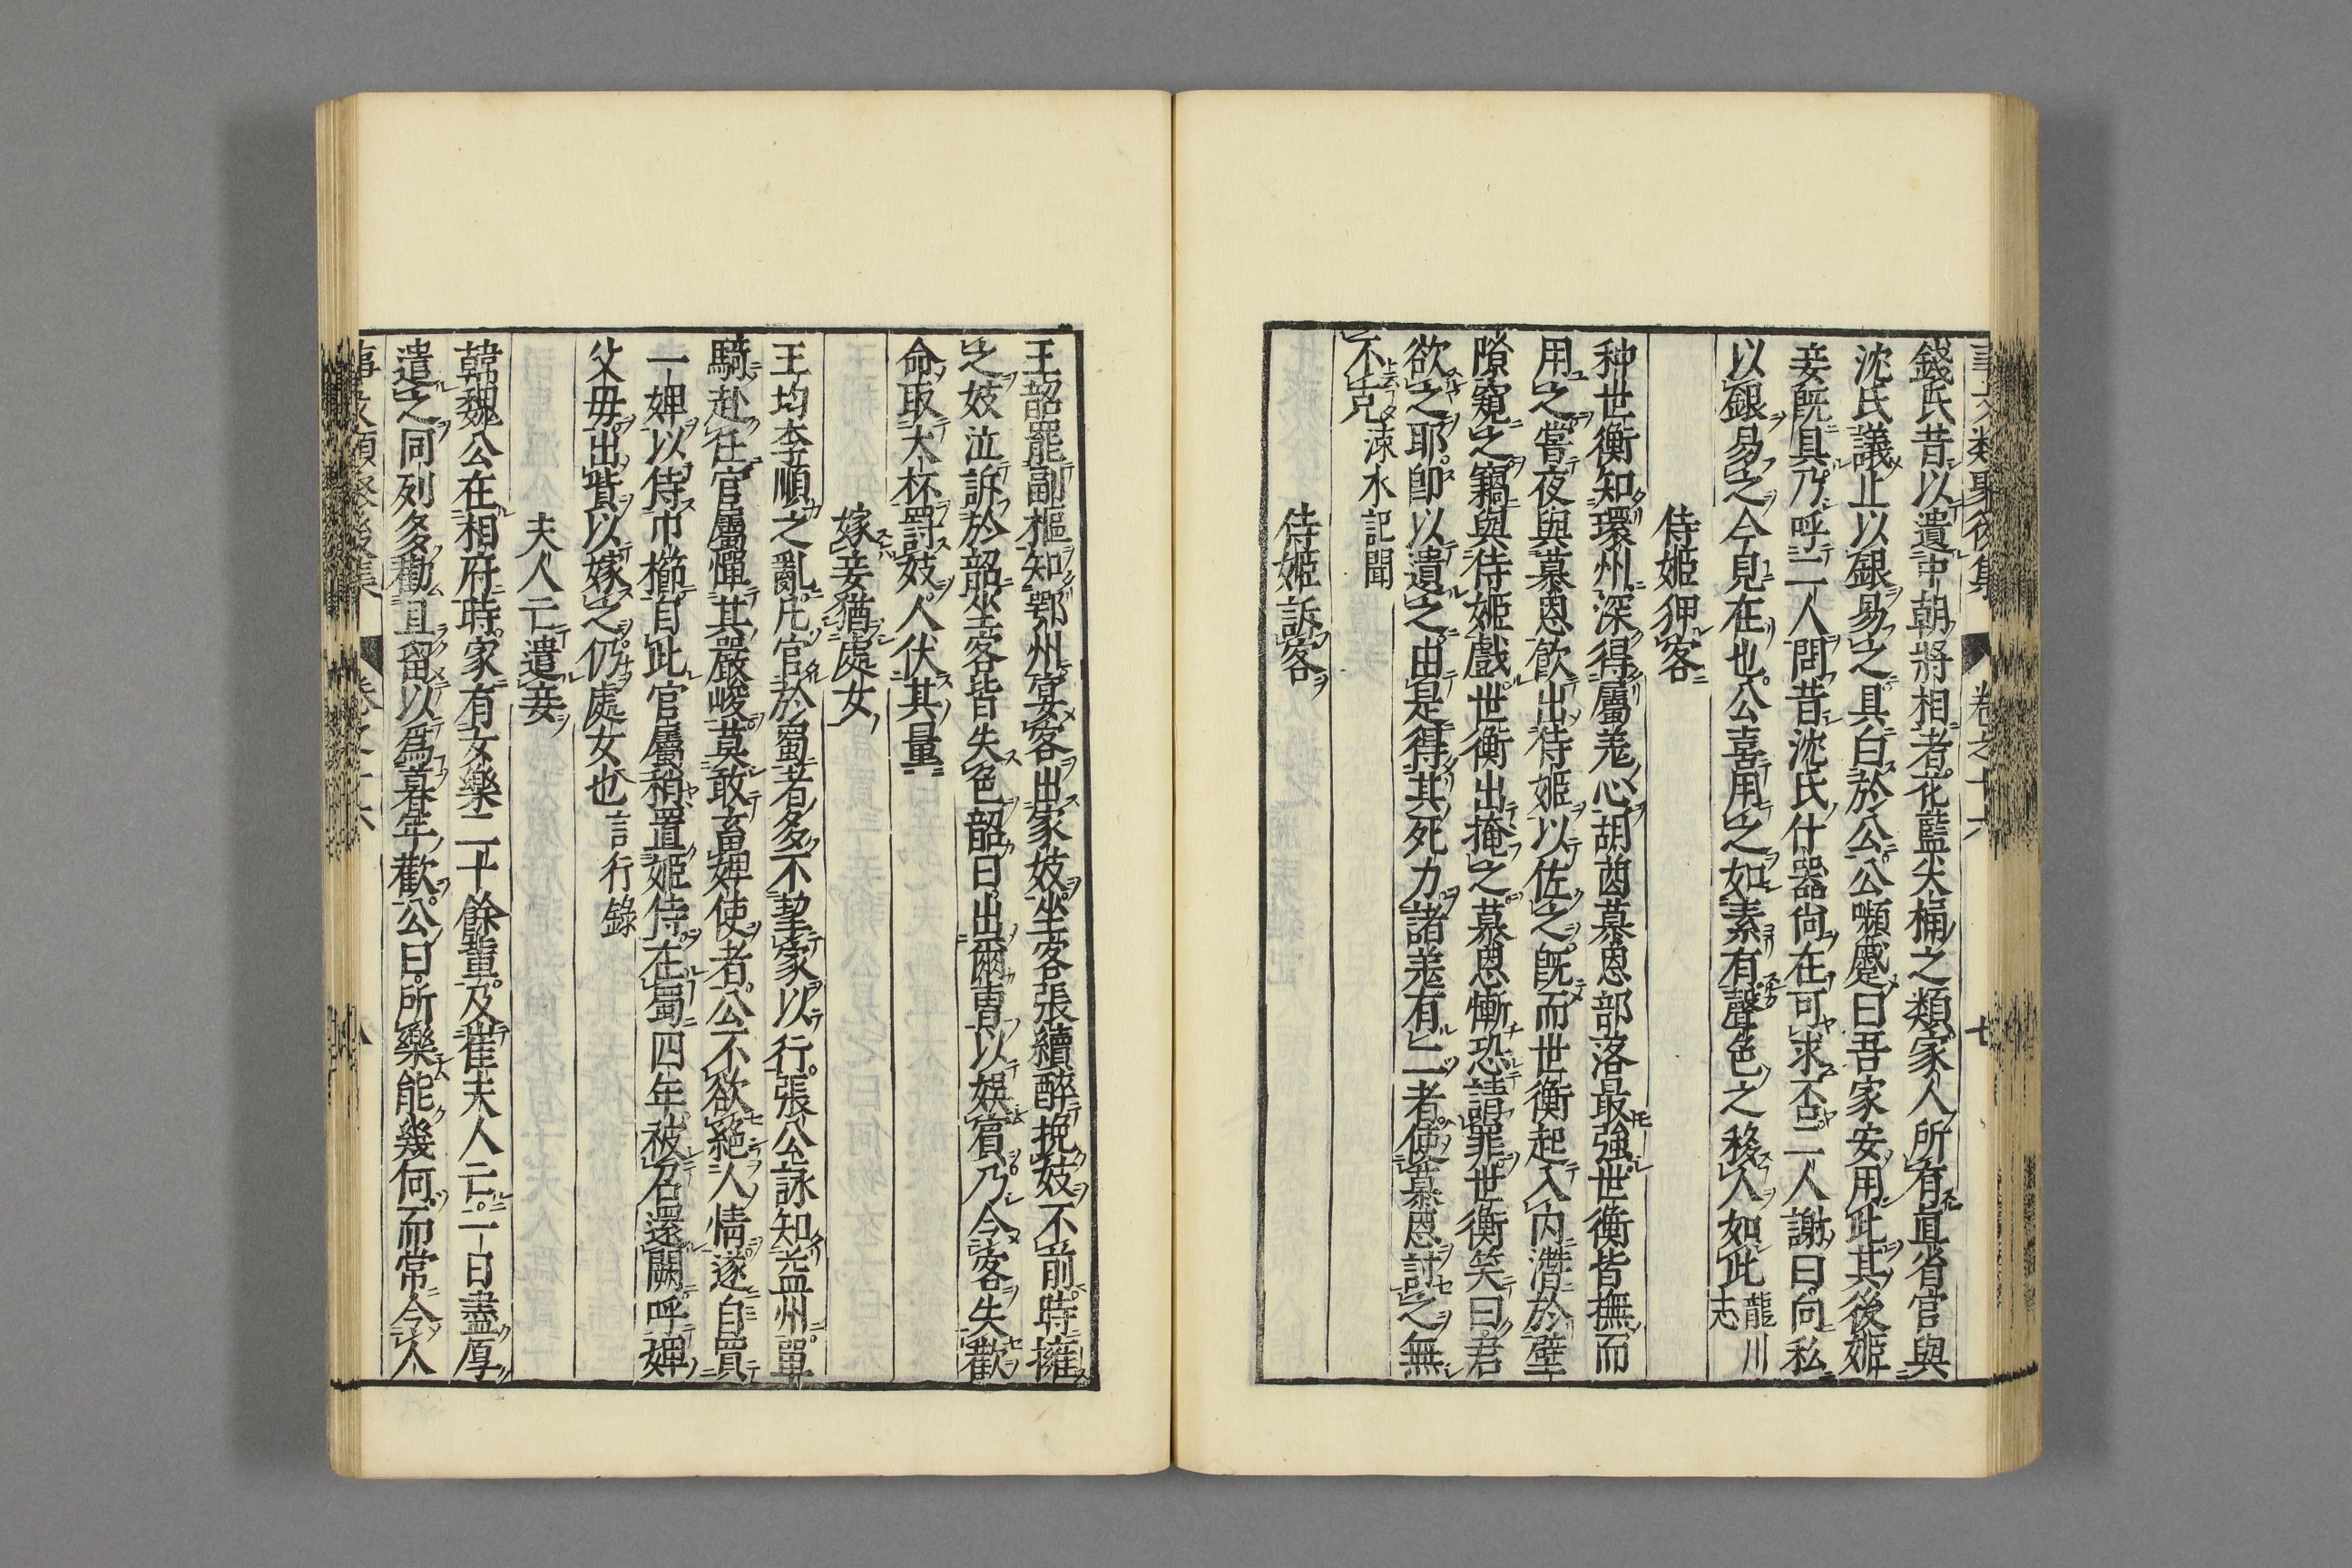 錢氏昔以遺中朝將相者花藍尖桶之類家人所有直省官與
沈氏議止以銀易之具白於公公嚬蹙曰吾家安用此其後姬
妾既具乃呼二人問昔沈氏什器尚在可求否二人謝曰向私
以銀易之今見在也公喜用之如素有聲色之移人如此龍川志
侍姬狎客
种世衡知環州深得屬羌心胡酋慕恩部落最強世衡皆撫而
用之嘗夜與慕恩飲出侍姬以佐之既而世衡起入内潛於壁
隙窺之竊與侍姬戲世衡出掩之慕恩慚恐請罪世衡笑曰君
欲之耶即以遺之由是得其死力諸羌有二者使慕恩討之無
不克涑水記聞
侍姬訴客
王韶罷副樞知鄂州宴客出家妓坐客張績醉挽妓不前時擁
之妓泣訴於韶坐客皆失色韶曰出爾曹以娛賓乃令客失歡
命取大杯罰妓人伏其量
嫁妾猶處女
王均李順之亂凡官於蜀者多不挈家以行張公詠知益州單
騎赴任官屬憚其嚴峻莫敢畜婢使者公不欲絕人情遂自買
一婢以侍巾櫛自此官屬稍置姬侍在蜀四年被召還闕呼婢
父母出貲以嫁之仍處女也言行錄
夫人亡遣妾
韓魏公在相府時家有女樂二十餘輩及崔夫人亡一日盡厚
遣之同列多勸且留以為暮年歡公曰所樂能幾何而常令人